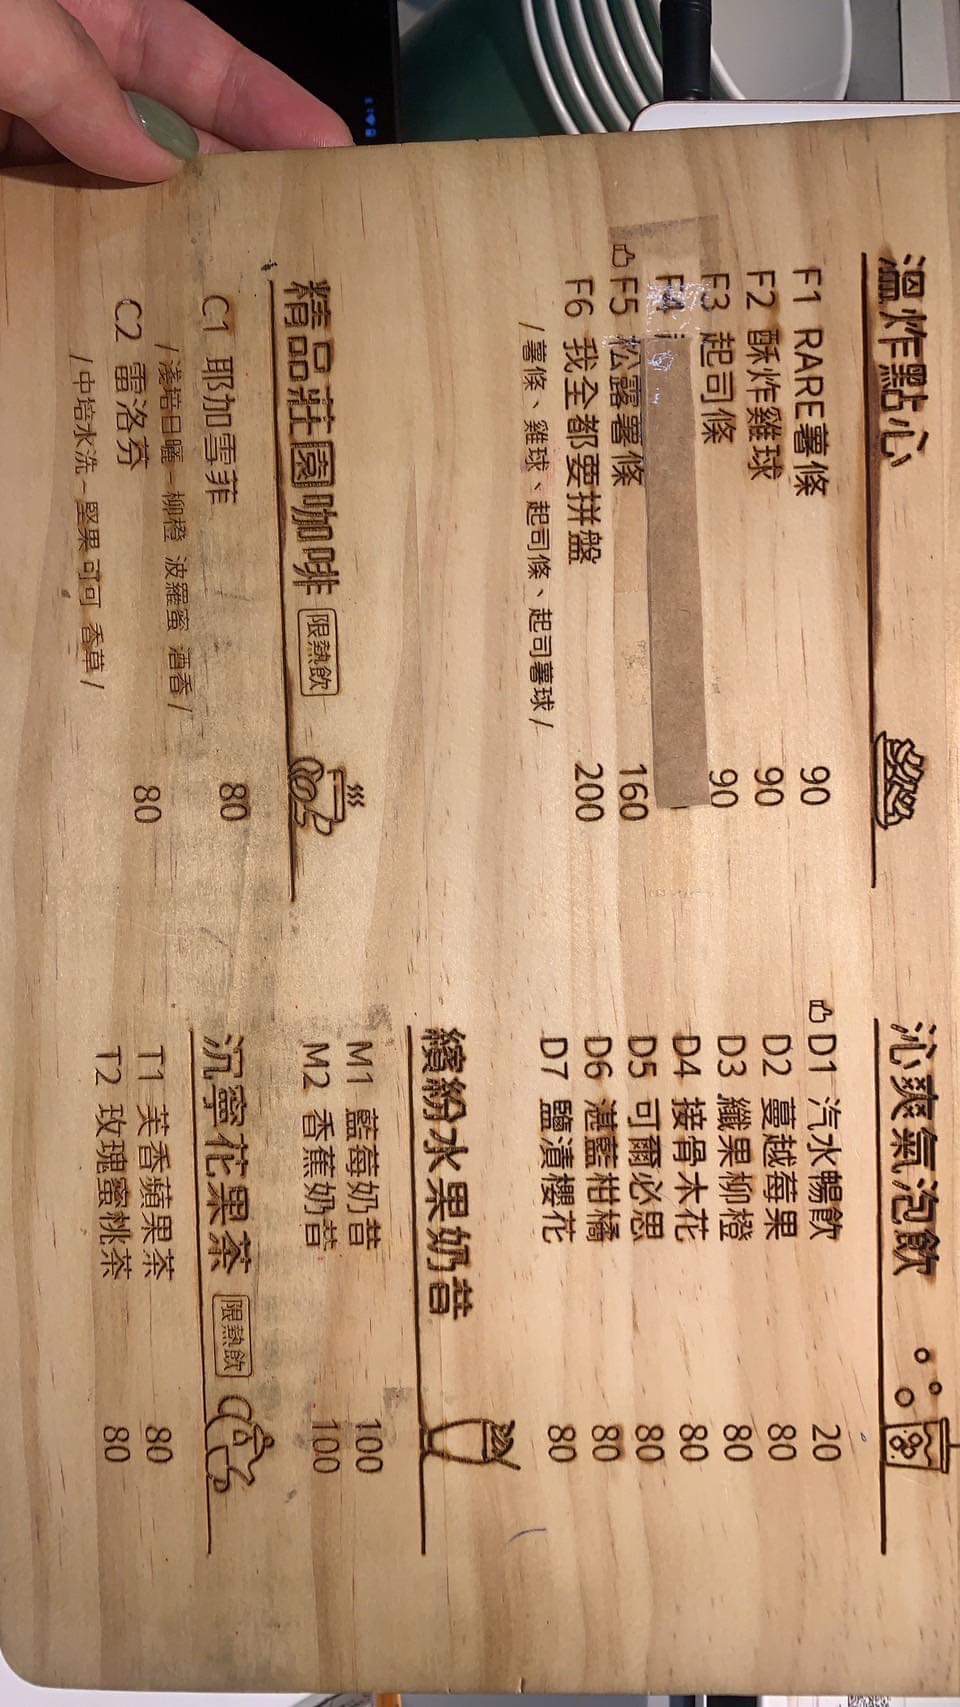 溫炸點心
F1 RARE薯條 90
F2 酥炸雞球 90
F3 起司條 90
F4
F5 松露薯條 160
F6 我全都要拼盤 200
/薯條、雞球、起司條、起司薯球/
精品莊園咖啡 限熱飲
C1 耶加雪菲 80
/淺焙日曬-柳橙 波羅蜜 酒香/
C2 雷洛芬 80
/中培水洗-堅果 可可 香草/
沁爽氣泡飲
D1 汽水暢飲 20
D2 蔓越莓果 80
D3 纖果柳橙 80
D4 接骨木花 80
D5 可爾必思 80
D6 湛藍柑橘 80
D7 鹽漬櫻花 80
繽紛水果奶昔
M1 藍莓奶昔 100
M2 香蕉奶昔 100
沉寧花果茶 限熱飲
T1 芙香蘋果茶 80
T2 玫瑰蜜桃茶 80